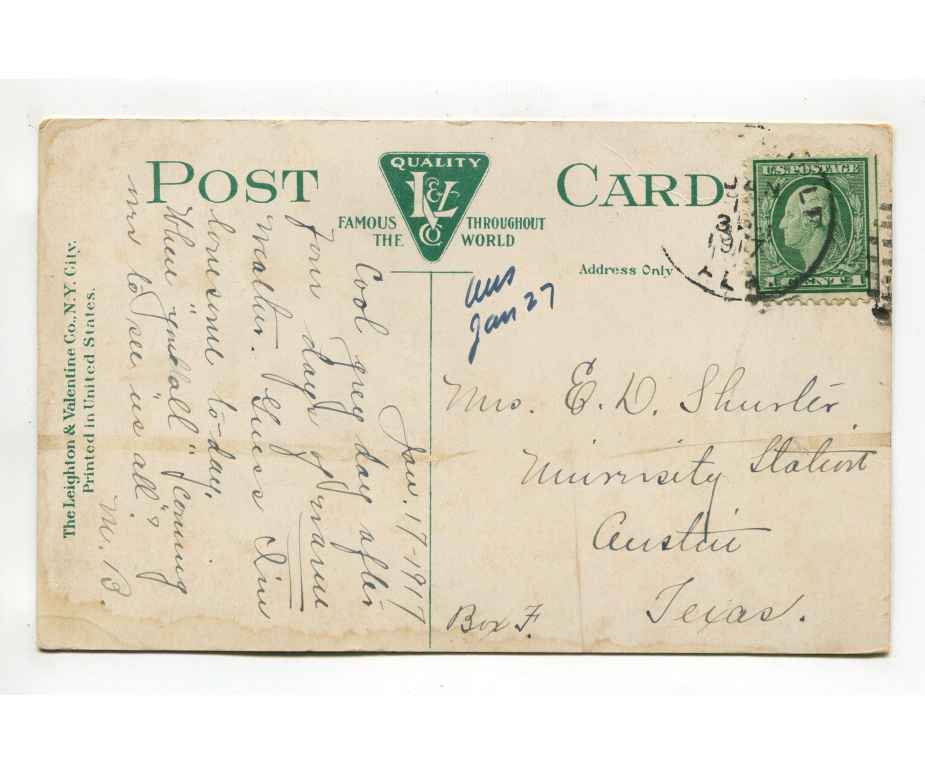 POST CARD
QUALITY
L & V Co
FAMOUS THROUGHOUT
THE WORLD
Address Only
U.S. POSTAGE
1 CENT 1
The Leighton & Valentine Co., N.Y. City.
Printed in United States.
ans
Jan 27
Jan. 17-1917
Cool grey day after
four days of warm
weather. Guess I'm
lonesome to-day.
When "youall" coming
to see us all?
M. B.
Mrs. E. D. Shurter
University Station
Austin
Texas.
Box F.